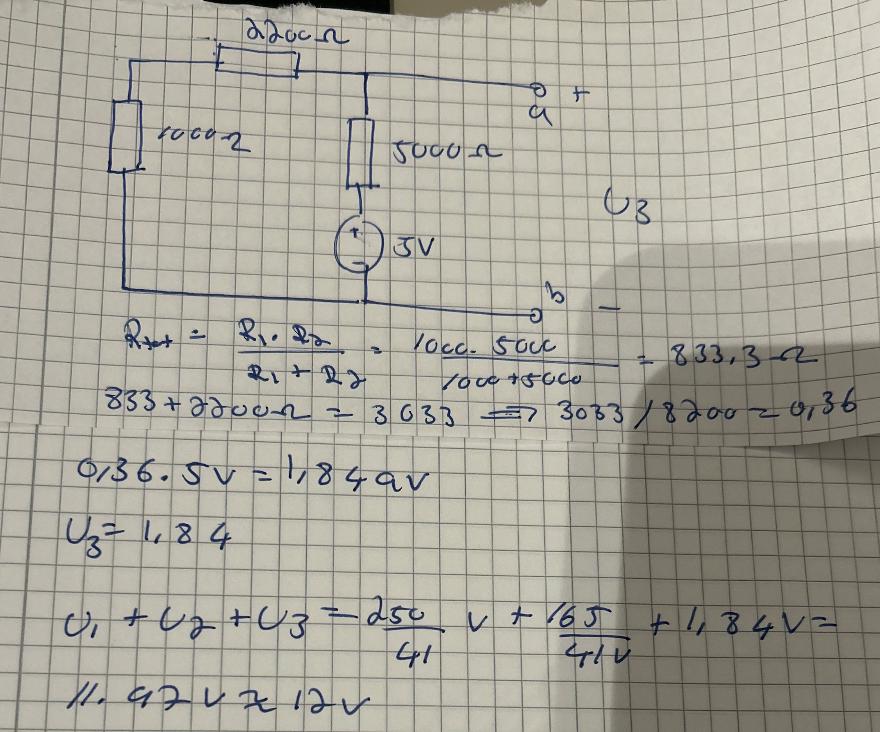 2200Ω
+
a
1000Ω
5000Ω
U3
+
5V
-
b -
Rtot = R1 · R2 / R1 + R2 = 1000 · 5000 / 1000 + 5000 = 833,3 Ω
833 + 2200Ω = 3033 => 3033 / 8200 = 0,36
0,36 · 5V = 1,849V
U3 = 1,84
U1 + U2 + U3 = 250/41 V + 165/41V + 1,84V =
11.97V ≈ 12V